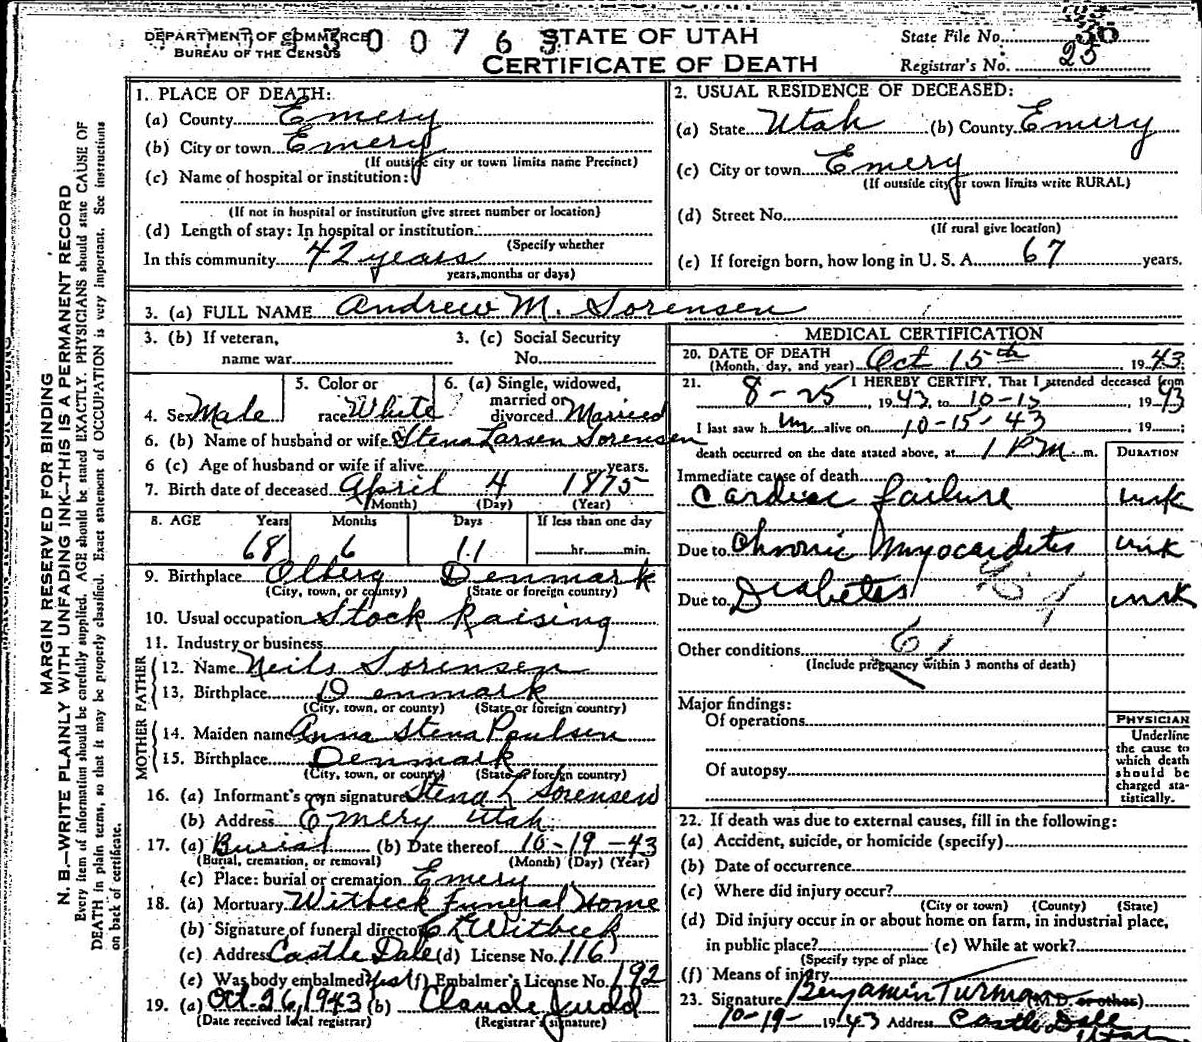 DEPARTMENT OF COMMERCE
BUREAU OF THE CENSUS
300763
STATE OF UTAH
CERTIFICATE OF DEATH
State File No. 36
Registrar's No. 25
MARGIN RESERVED FOR BINDING
N. B.—WRITE PLAINLY WITH UNFADING INK—THIS IS A PERMANENT RECORD
Every item of information should be carefully supplied. AGE should be stated EXACTLY. PHYSICIANS should state CAUSE OF
DEATH in plain terms, so that it may be properly classified. Exact statement of OCCUPATION is very important. See instructions
on back of certificate.
1. PLACE OF DEATH:
(a) County Emery
(b) City or town Emery
(If outside city or town limits name Precinct)
(c) Name of hospital or institution:
(If not in hospital or institution give street number or location)
(d) Length of stay: In hospital or institution
(Specify whether
In this community 42 years
years, months or days)
2. USUAL RESIDENCE OF DECEASED:
(a) State Utah (b) County Emery
(c) City or town Emery
(If outside city or town limits write RURAL)
(d) Street No.
(If rural give location)
(e) If foreign born, how long in U. S. A. 67 years.
3. (a) FULL NAME Andrew M. Sorensen
3. (b) If veteran,
name war
3. (c) Social Security
No.
4. Sex Male
5. Color or
race White
6. (a) Single, widowed,
married or
divorced Married
6. (b) Name of husband or wife Stena Larsen Sorensen
6 (c) Age of husband or wife if alive years.
7. Birth date of deceased April 4 1875
(Month) (Day) (Year)
8. AGE Years Months Days If less than one day
68 6 11 hr. min.
9. Birthplace Olberg Denmark
(City, town, or county) (State or foreign country)
10. Usual occupation Stock Raising
11. Industry or business
FATHER
12. Name Neils Sorensen
13. Birthplace Denmark
(City, town, or county) (State or foreign country)
MOTHER
14. Maiden name Anna Stena Paulsen
15. Birthplace Denmark
(City, town, or county) (State or foreign country)
16. (a) Informant's own signature Stena L Sorensen
(b) Address Emery Utah
17. (a) Burial (b) Date thereof 10-19-43
(Burial, cremation, or removal) (Month) (Day) (Year)
(c) Place: burial or cremation Emery
18. (a) Mortuary Witbeck Funeral Home
(b) Signature of funeral director C L Witbeck
(c) Address Castle Dale (d) License No. 116
(e) Was body embalmed yes (f) Embalmer's License No. 192
19. (a) Oct-26, 1943 (b) Claude Judd
(Date received local registrar) (Registrar's signature)
MEDICAL CERTIFICATION
20. DATE OF DEATH
(Month, day, and year) Oct 15th 1943
21. I HEREBY CERTIFY, That I attended deceased from
8-25 1943, to 10-15 1943
I last saw him alive on 10-15-43, 19
death occurred on the date stated above, at 1 PM m.
DURATION
Immediate cause of death
Cardiac failure unk
Due to Chronic Myocarditis unk
Due to Diabetes unk
61
Other conditions
(Include pregnancy within 3 months of death)
Major findings:
Of operations
Of autopsy
PHYSICIAN
Underline
the cause to
which death
should be
charged sta-
tistically.
22. If death was due to external causes, fill in the following:
(a) Accident, suicide, or homicide (specify)
(b) Date of occurrence
(c) Where did injury occur?
(City or town) (County) (State)
(d) Did injury occur in or about home on farm, in industrial place,
in public place? (e) While at work?
(Specify type of place
(f) Means of injury
23. Signature Benjamin Turman (M.D. or other)
10-19- 1943 Address Castle Dale
Utah